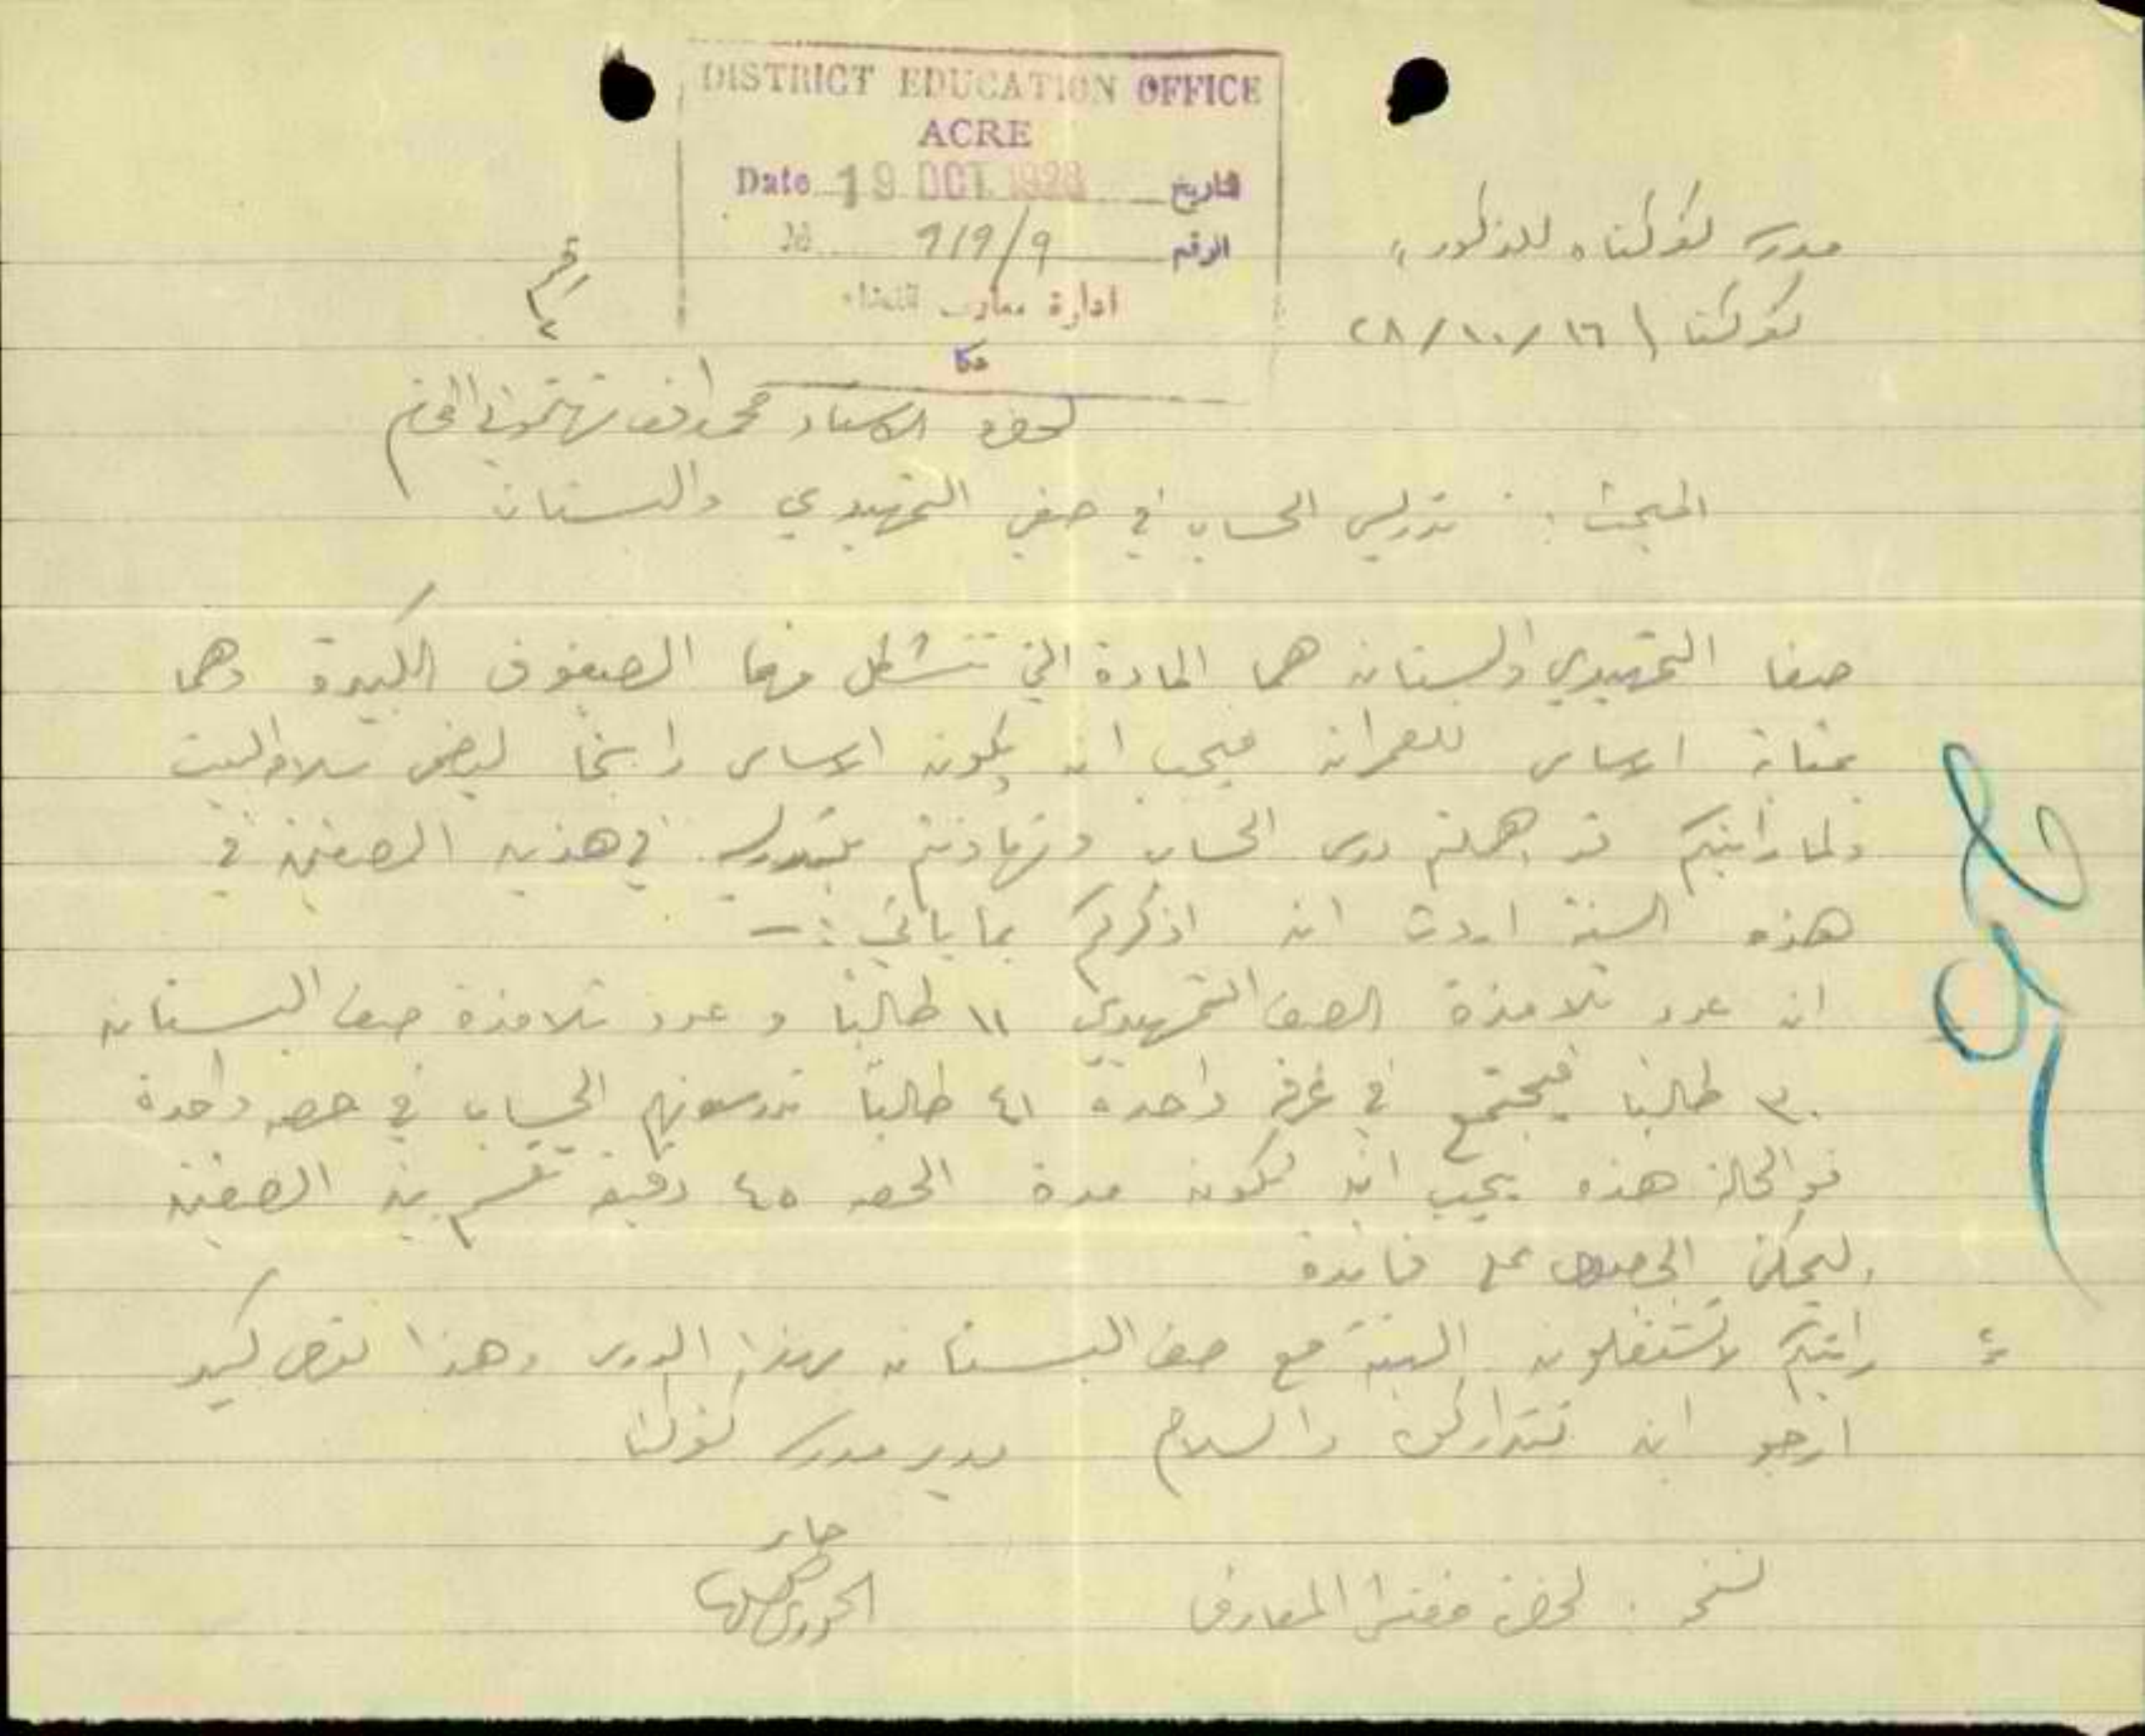 DISTRICT EDUCATION OFFICE
ACRE
Date 19 OCT 1928 تاريخ
No 9/9/9 الرقم
ادارة معارف قضاء
عكا
للذكور
١٦/١٠/٢٨
رقم
لحضرة الاستاذ محمد افندي المحترم
المبحث: تدريس الحساب في صفي التمهيدي والبستان
صفا التمهيدي والبستان هما المادة التي تتشكل منها الصفوف الكبيرة وهما
بمثابة اساس للعمران فيجب ان يكون الاساس راسخا البيت
ولما رأيتكم قد اهملتم درس الحساب وتهاونتم بتدريسه في هذين الصفين في
هذه السنة اردت ان اذكركم بما يأتي :-
ان عدد تلامذة الصف التمهيدي ١١ طالبا وعدد تلامذة صف البستان
٣٠ طالبا فيجتمع في غرفة واحدة ٤١ طالبا تدرسونهم الحساب في حصه واحدة
ففي الحالة هذه يجب ان تكون مدة الحصه ٤٥ دقيقه تقسم بين الصفين
ليمكن الحصول على فائدة
رأيتكم لا تشتغلون البتة مع صف البستان بهذا الدرس وهذا نقص كبير
ارجو ان تتداركوه والسلام مدير مدرسة
نسخه: لحضرة مفتش المعارف
الخوري